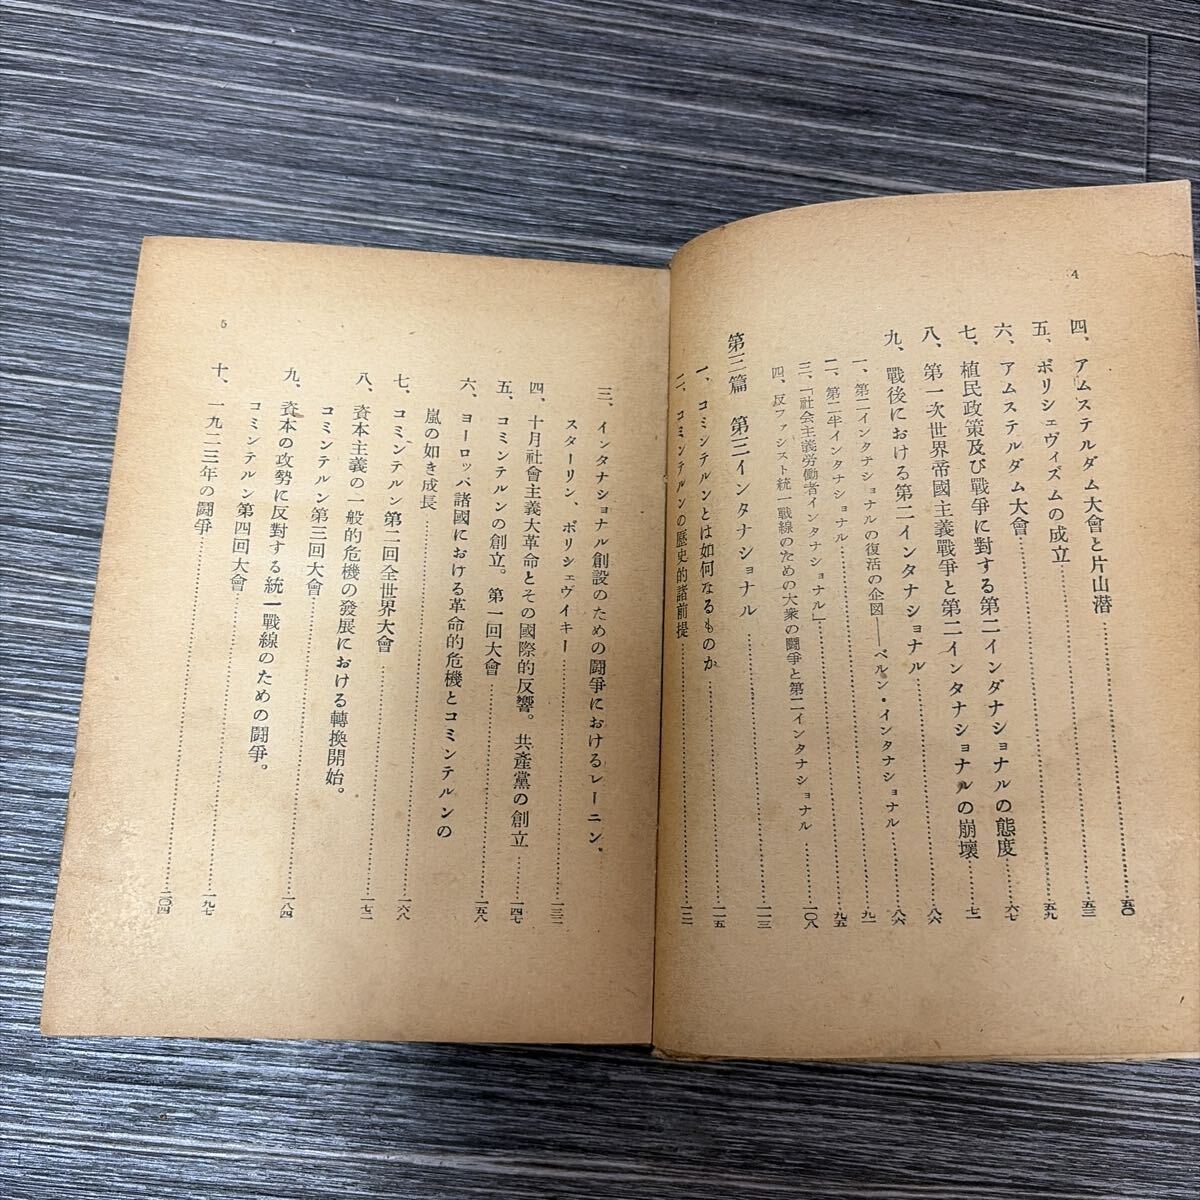 4
四、アムステルダム大會と片山潜……五〇
五、ボリシェヴィズムの成立……五三
六、アムステルダム大會……五九
七、植民政策及び戰爭に對する第二インタナショナルの態度……六七
八、第一次世界帝國主義戰爭と第二インタナショナルの崩壞……七一
九、戰後における第二インタナショナル……八六
一、第二インタナショナルの復活の企図――ベルン・インタナショナル……八六
二、第二半インタナショナル……九一
三、「社会主義労働者インタナショナル」……九五
四、反ファシスト統一戰線のための大衆の闘爭と第二インタナショナル……一〇八
第三篇 第三インタナショナル……一一三
一、コミンテルンとは如何なるものか……一一五
二、コミンテルンの歷史的諸前提……一二一
三、インタナショナル創設のための闘爭におけるレーニン、
スターリン、ボリシェヴイキー……一三二
四、十月社會主義大革命とその國際的反響。共產黨の創立……一四七
五、コミンテルンの創立。第一回大會……一五八
六、ヨーロッパ諸國における革命的危機とコミンテルンの
嵐の如き成長……一六八
七、コミンテルン第二回全世界大會……一七二
八、資本主義の一般的危機の發展における轉換開始。
コミンテルン第三回大會……一八四
九、資本の攻勢に反對する統一戰線のための闘爭。
コミンテルン第四回大會……一九七
十、一九二三年の闘爭……二〇四
5